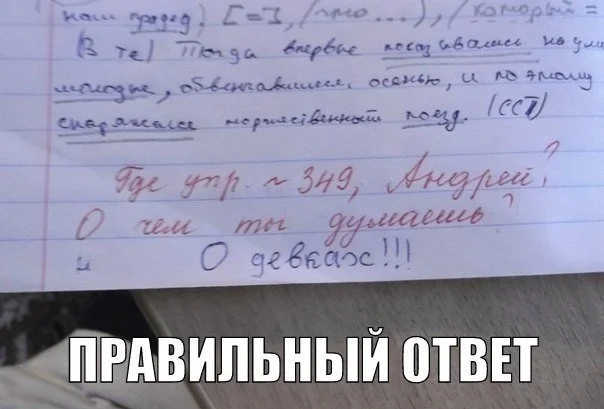 наш прадед, [=], (что...), (который =
(В те) Тогда впервые показывались на ули
молодые, обвенчавшиеся осенью, и поэтому
снаряжался торжественный поезд. (ССП)
Где упр. ~ 349, Андрей?
О чем ты думаешь?
О девках!!!
ПРАВИЛЬНЫЙ ОТВЕТ